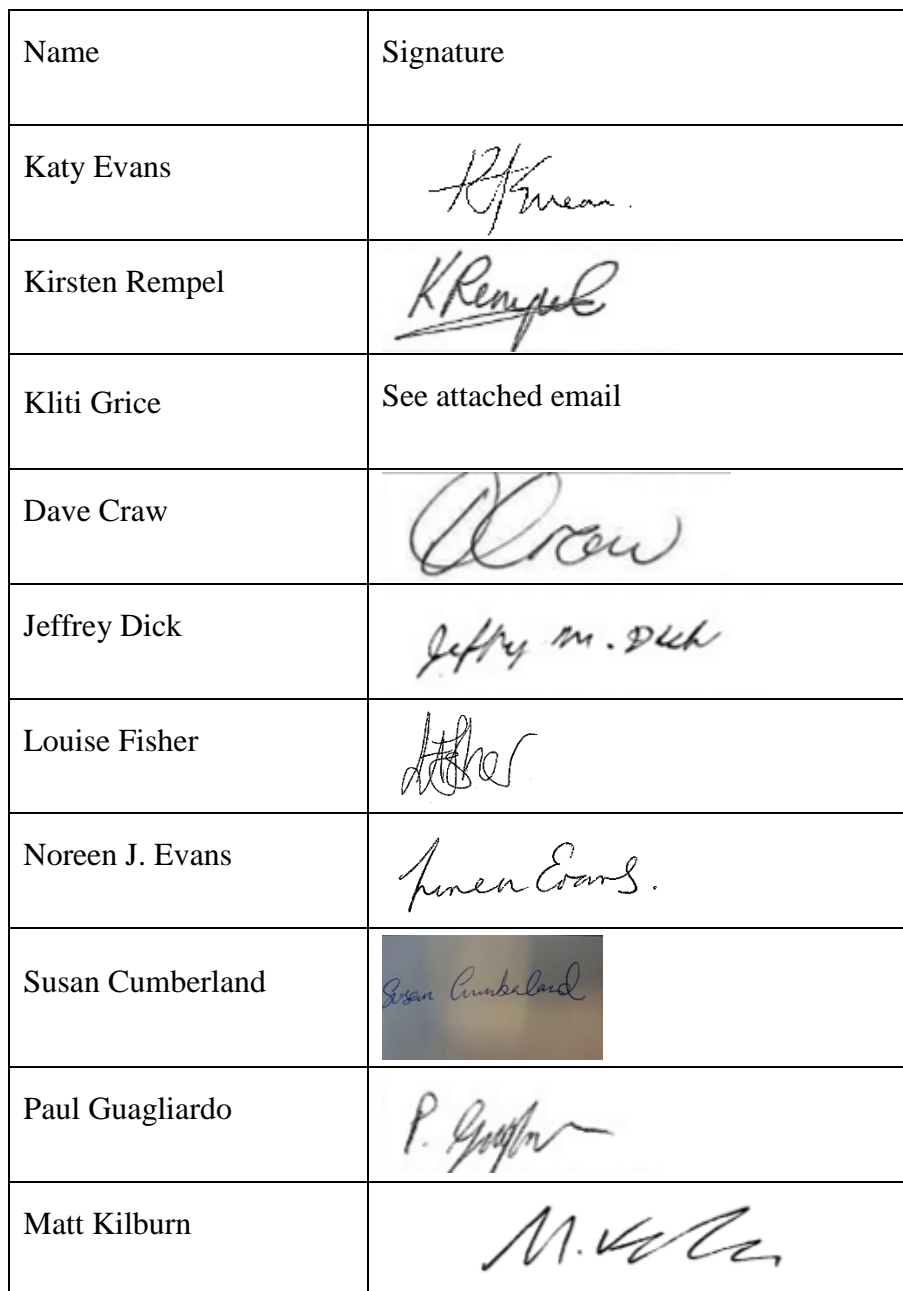 Name Signature
Katy Evans
Kirsten Rempel K Rempel
Kliti Grice See attached email
Dave Craw DCraw
Jeffrey Dick Jeffrey M. Dick
Louise Fisher LFisher
Noreen J. Evans Noreen Evans.
Susan Cumberland Susan Cumberland
Paul Guagliardo P.
Matt Kilburn M.